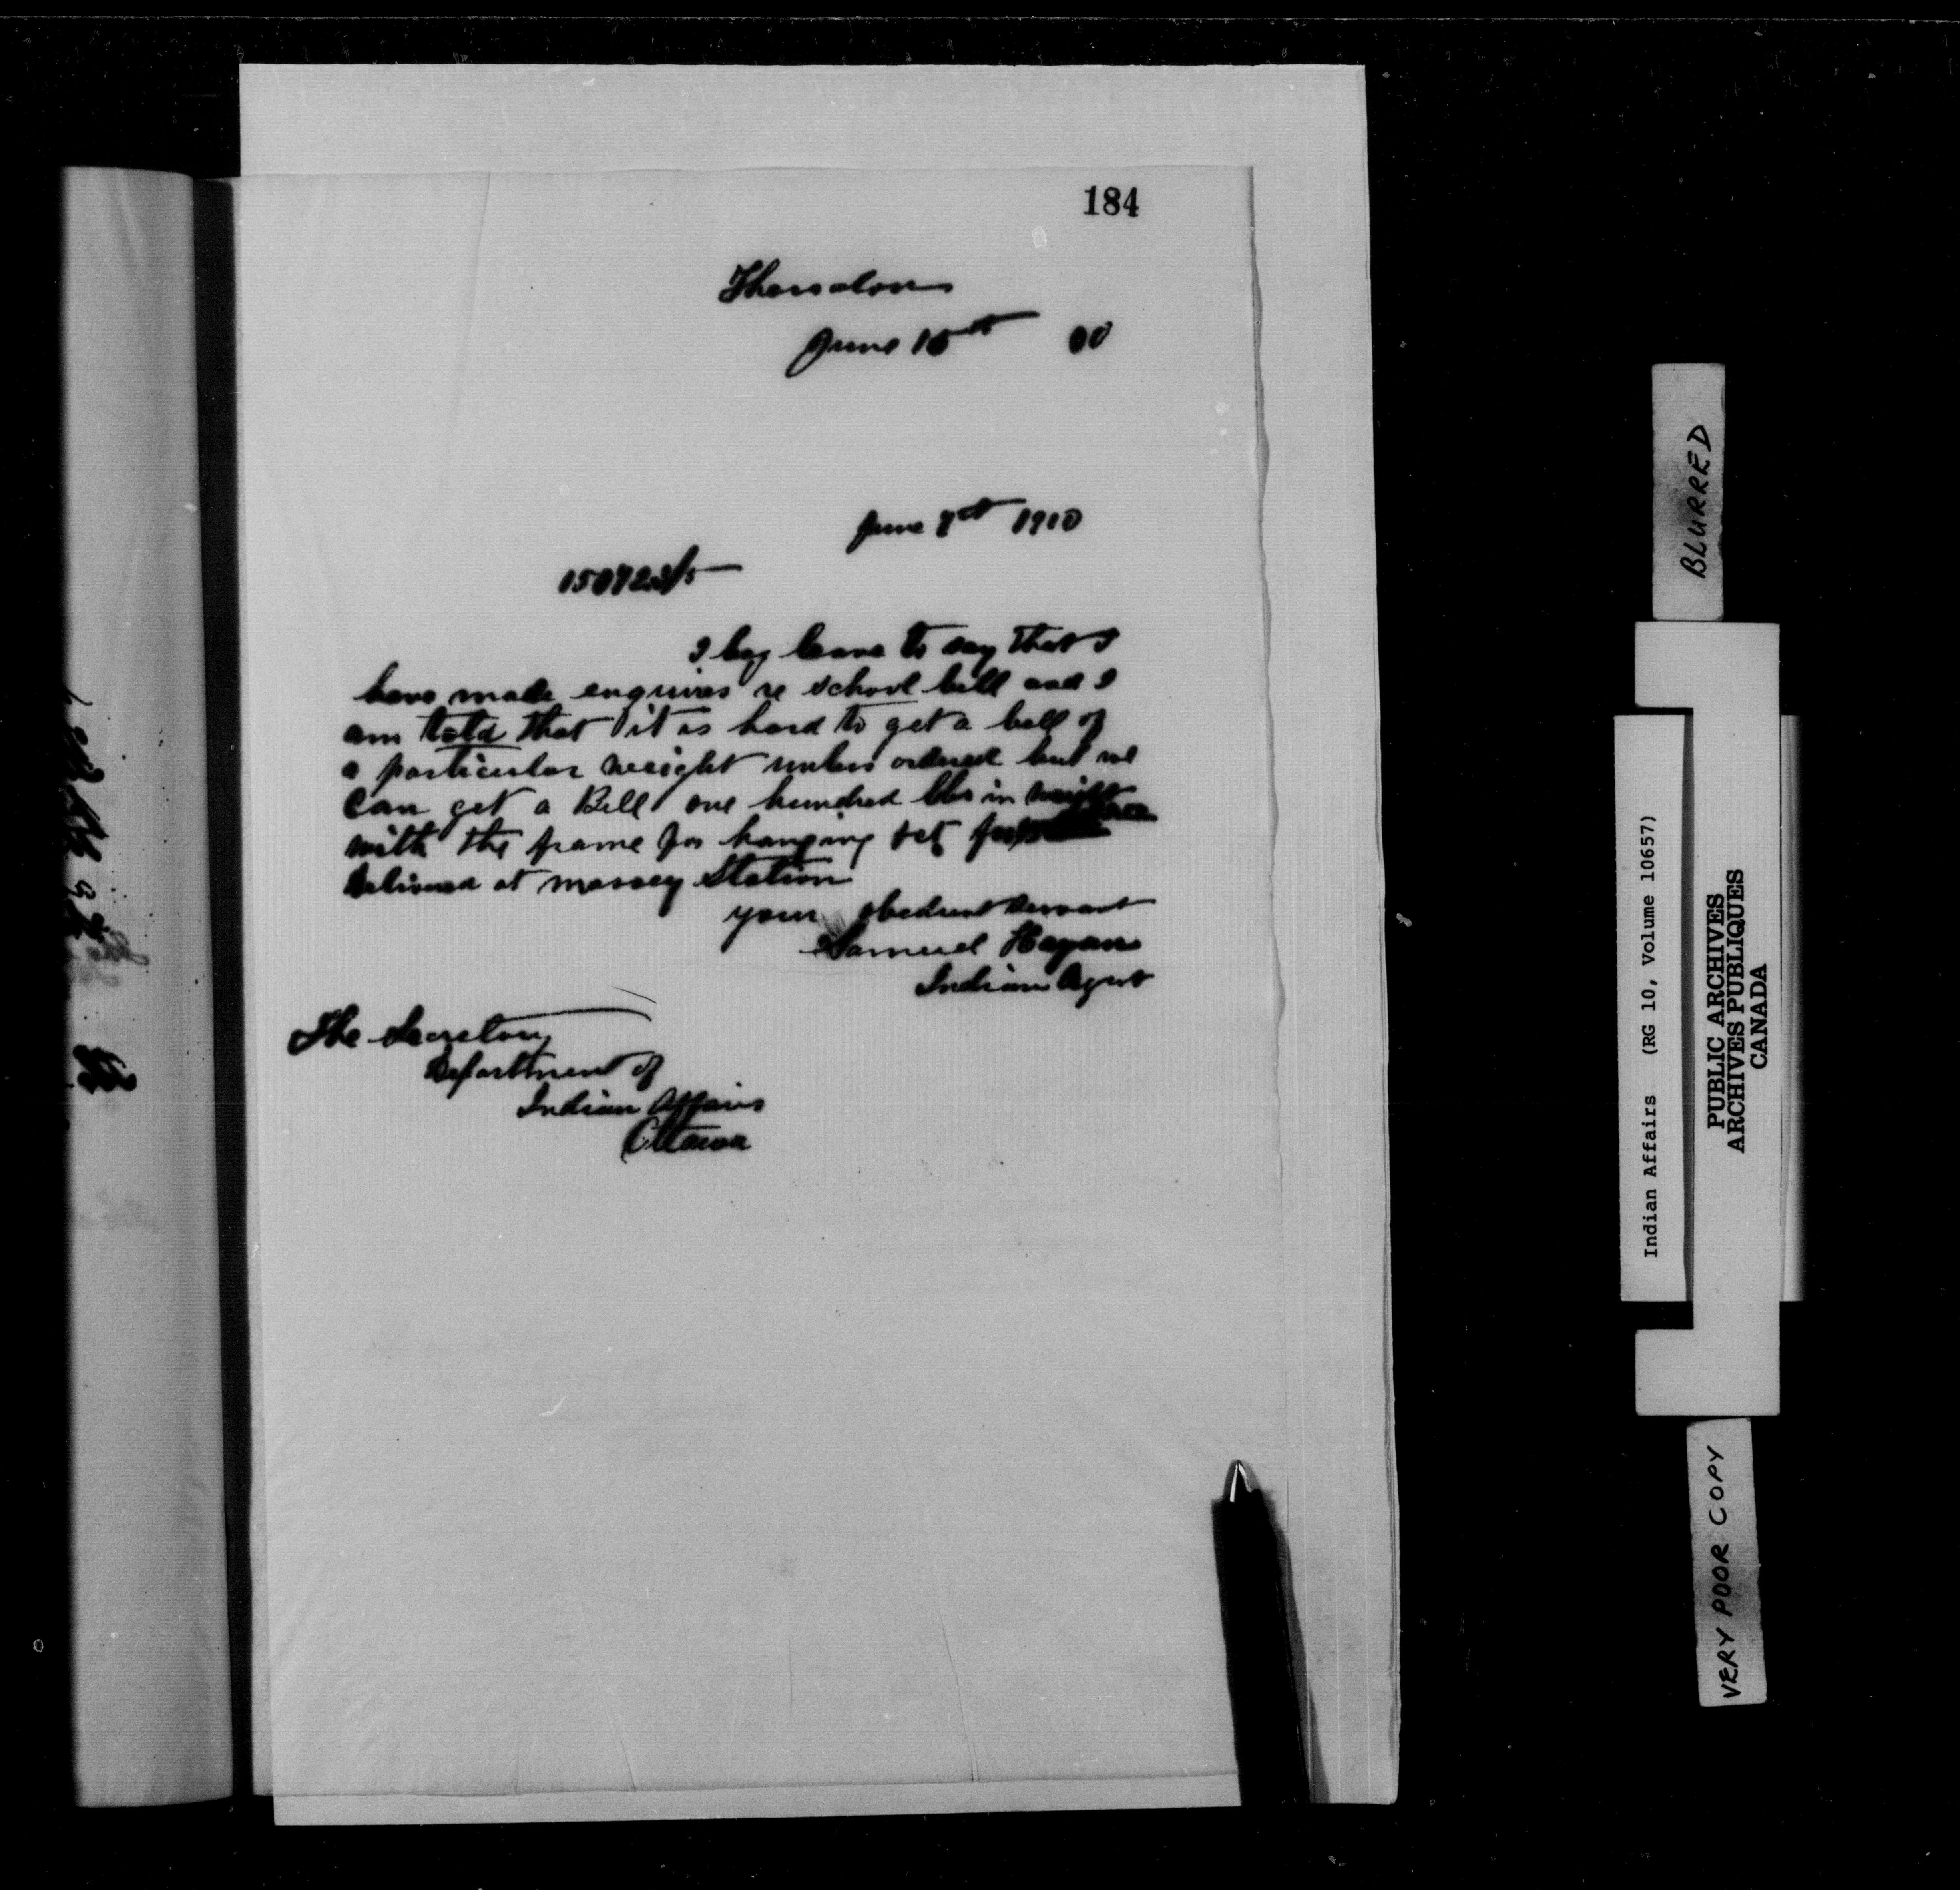 184
Thessalon
June 15th 00
June 7th 1910
I beg leave to say that I
have made enquires re school bell and I
am told that it is hard to get a bell of
a particular weight unless ordered but we
can get a Bell one hundred lbs in weight
with the frame for hanging set for
delivered at massey Station
your obedient servant
Samuel Hagan
Indian Agent
The Secretary
Department of
Indian Affairs
Ottawa
BLURRED
Indian Affairs (RG 10, Volume 10657)
PUBLIC ARCHIVES
ARCHIVES PUBLIQUES
CANADA
VERY POOR COPY